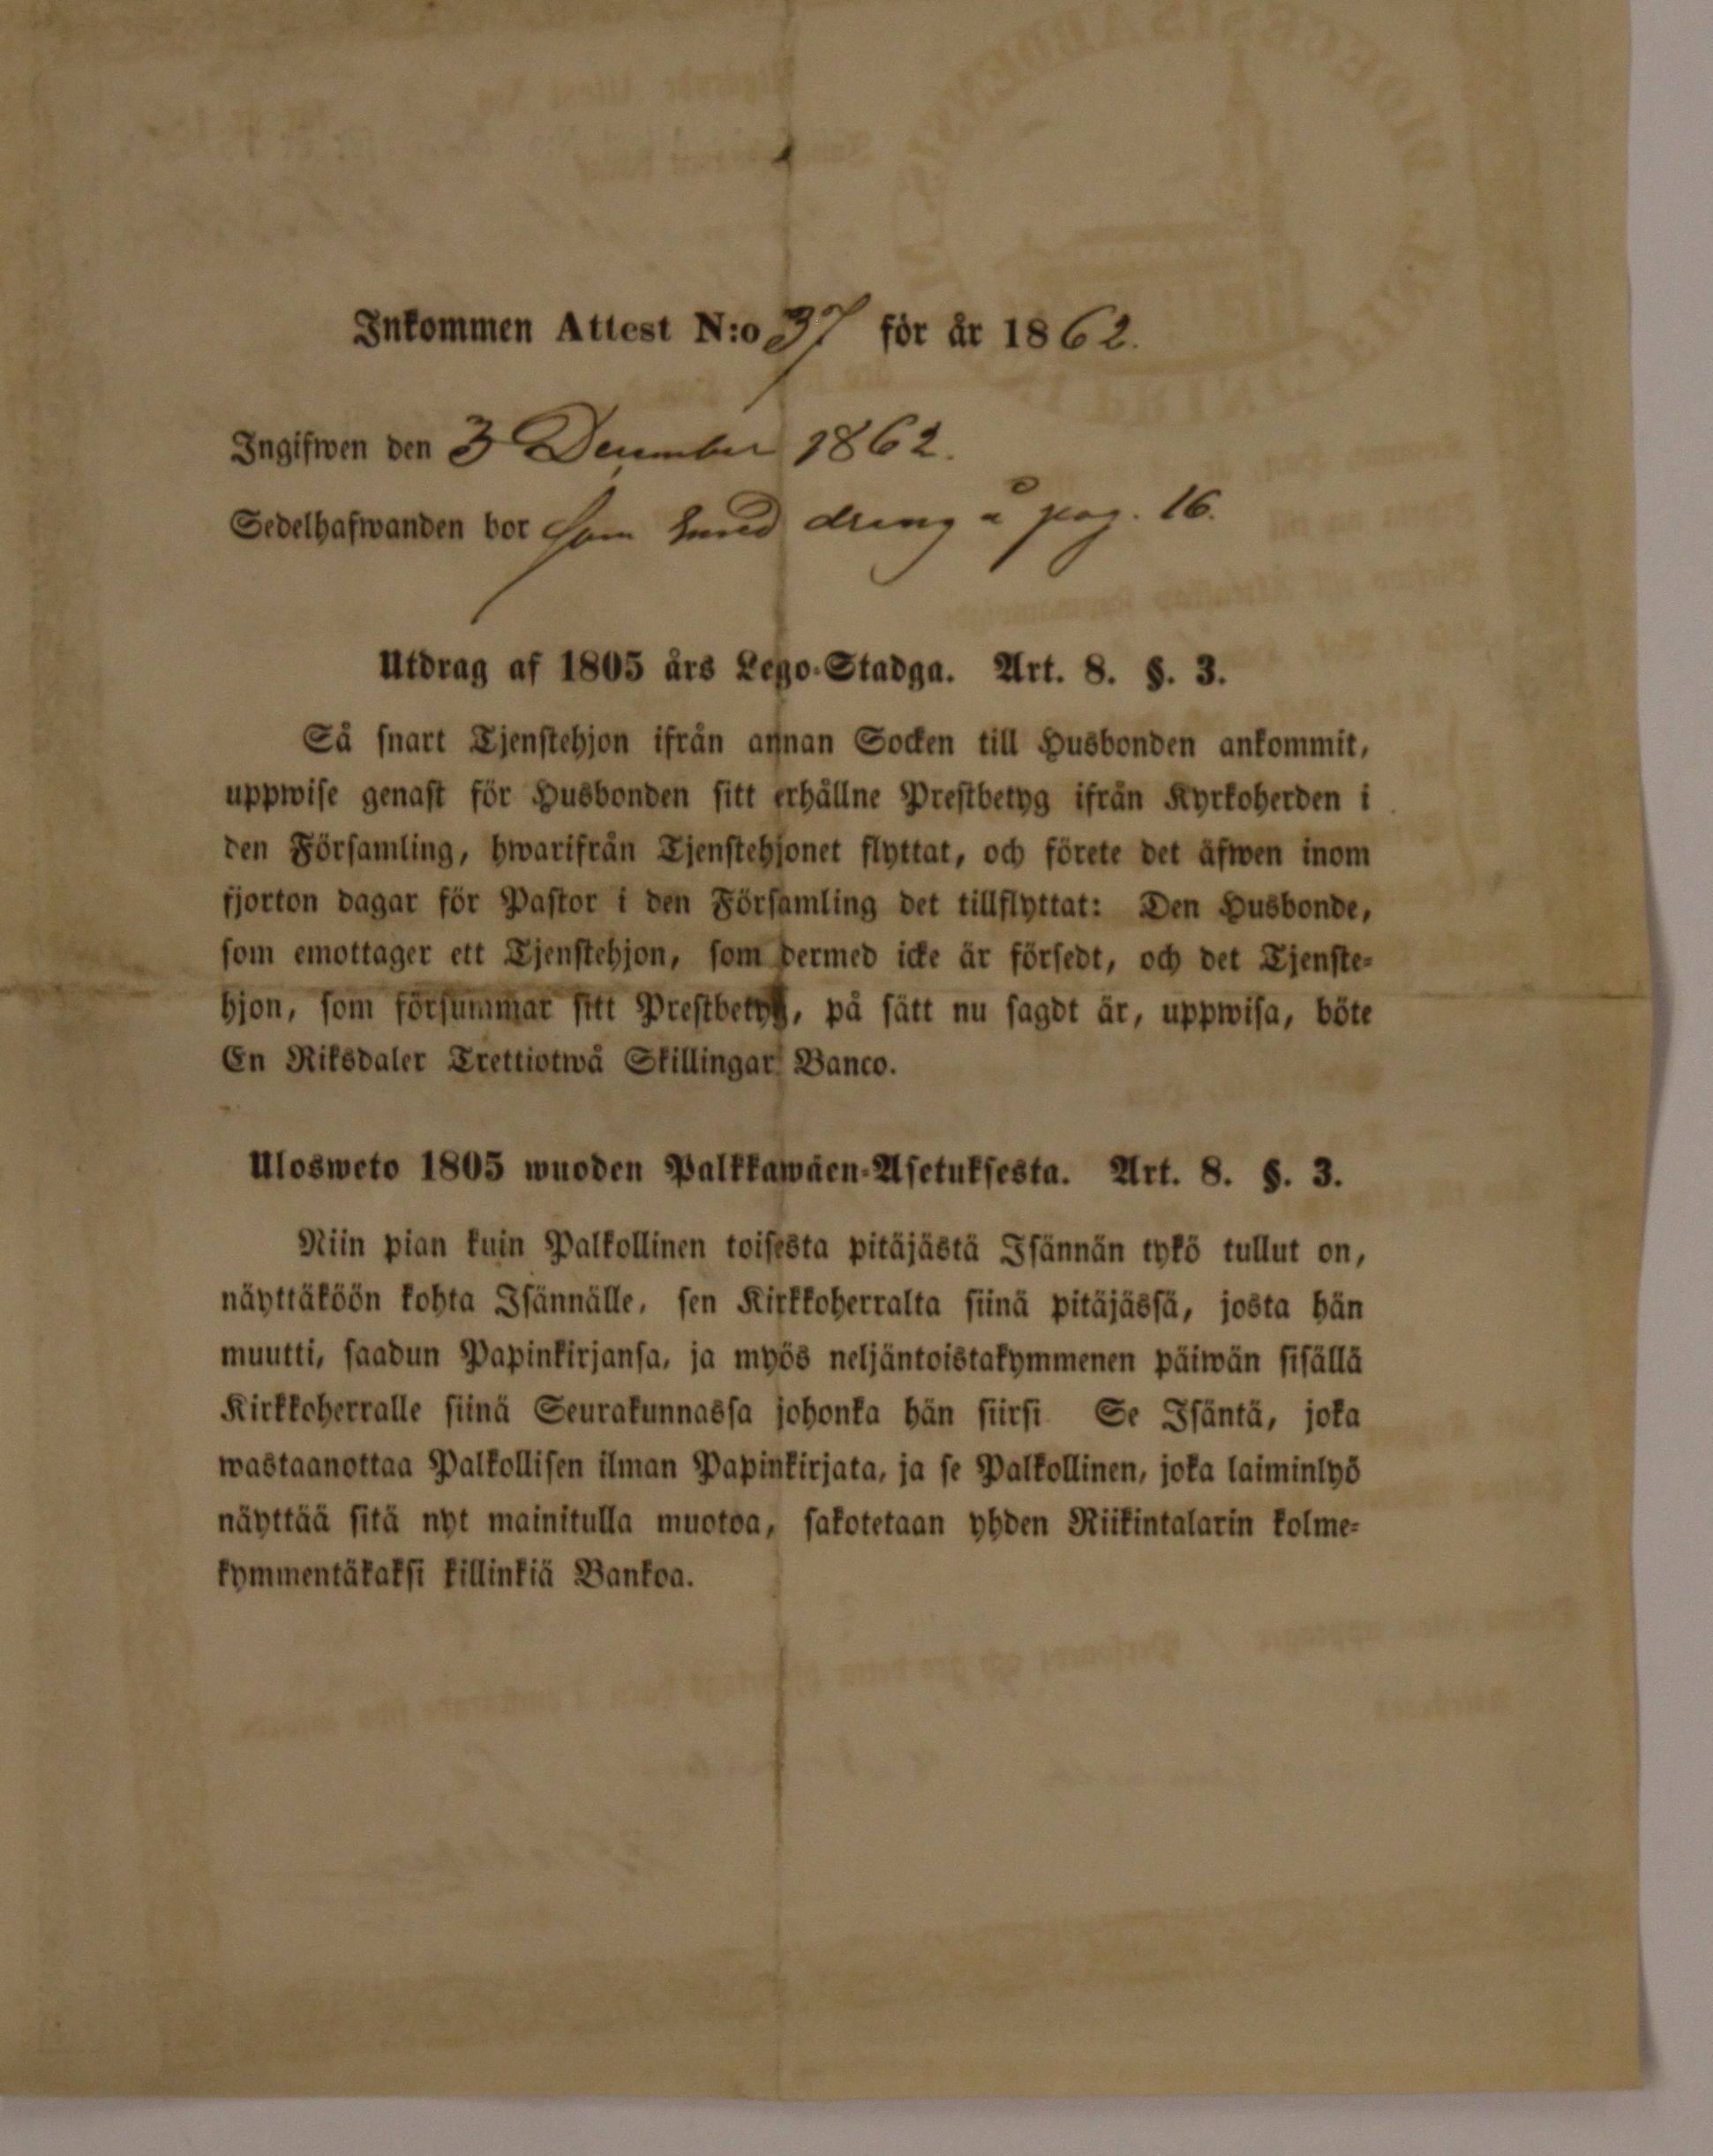 Inkommen Attest N:o 37 för år 1862.
Ingifwen den 3 December 1862.
Sedelhafwanden bor som Smed dreng å pag. 16.
Utdrag af 1805 års Lego-Stadga. Art. 8. §. 3.
Så snart Tjenstehjon ifrån annan Socken till Husbonden ankommit,
uppwise genast för Husbonden sitt erhållne Prestbetyg ifrån Kyrkoherden i
den Församling, hwarifrån Tjenstehjonet flyttat, och förete det äfwen inom
fjorton dagar för Pastor i den Församling det tillflyttat: Den Husbonde,
som emottager ett Tjenstehjon, som dermed icke är försedt, och det Tjenste-
hjon, som försummar sitt Prestbetyg, på sätt nu sagdt är, uppwisa, böte
En Riksdaler Trettiotwå Skillingar Banco.
Ulosweto 1805 wuoden Palkkawäen-Asetuksesta. Art. 8. §. 3.
Niin pian kuin Palkollinen toisesta pitäjästä Isännän tykö tullut on,
näyttäköön kohta Isännälle, sen Kirkkoherralta siinä pitäjässä, josta hän
muutti, saadun Papinkirjansa, ja myös neljäntoistakymmenen päiwän sisällä
Kirkkoherralle siinä Seurakunnassa johonka hän siirsi Se Isäntä, joka
wastaanottaa Palkollisen ilman Papinkirjata, ja se Palkollinen, joka laiminlyö
näyttää sitä nyt mainitulla muotoa, sakotetaan yhden Riikintalarin kolme-
kymmentäkaksi killinkiä Bankoa.